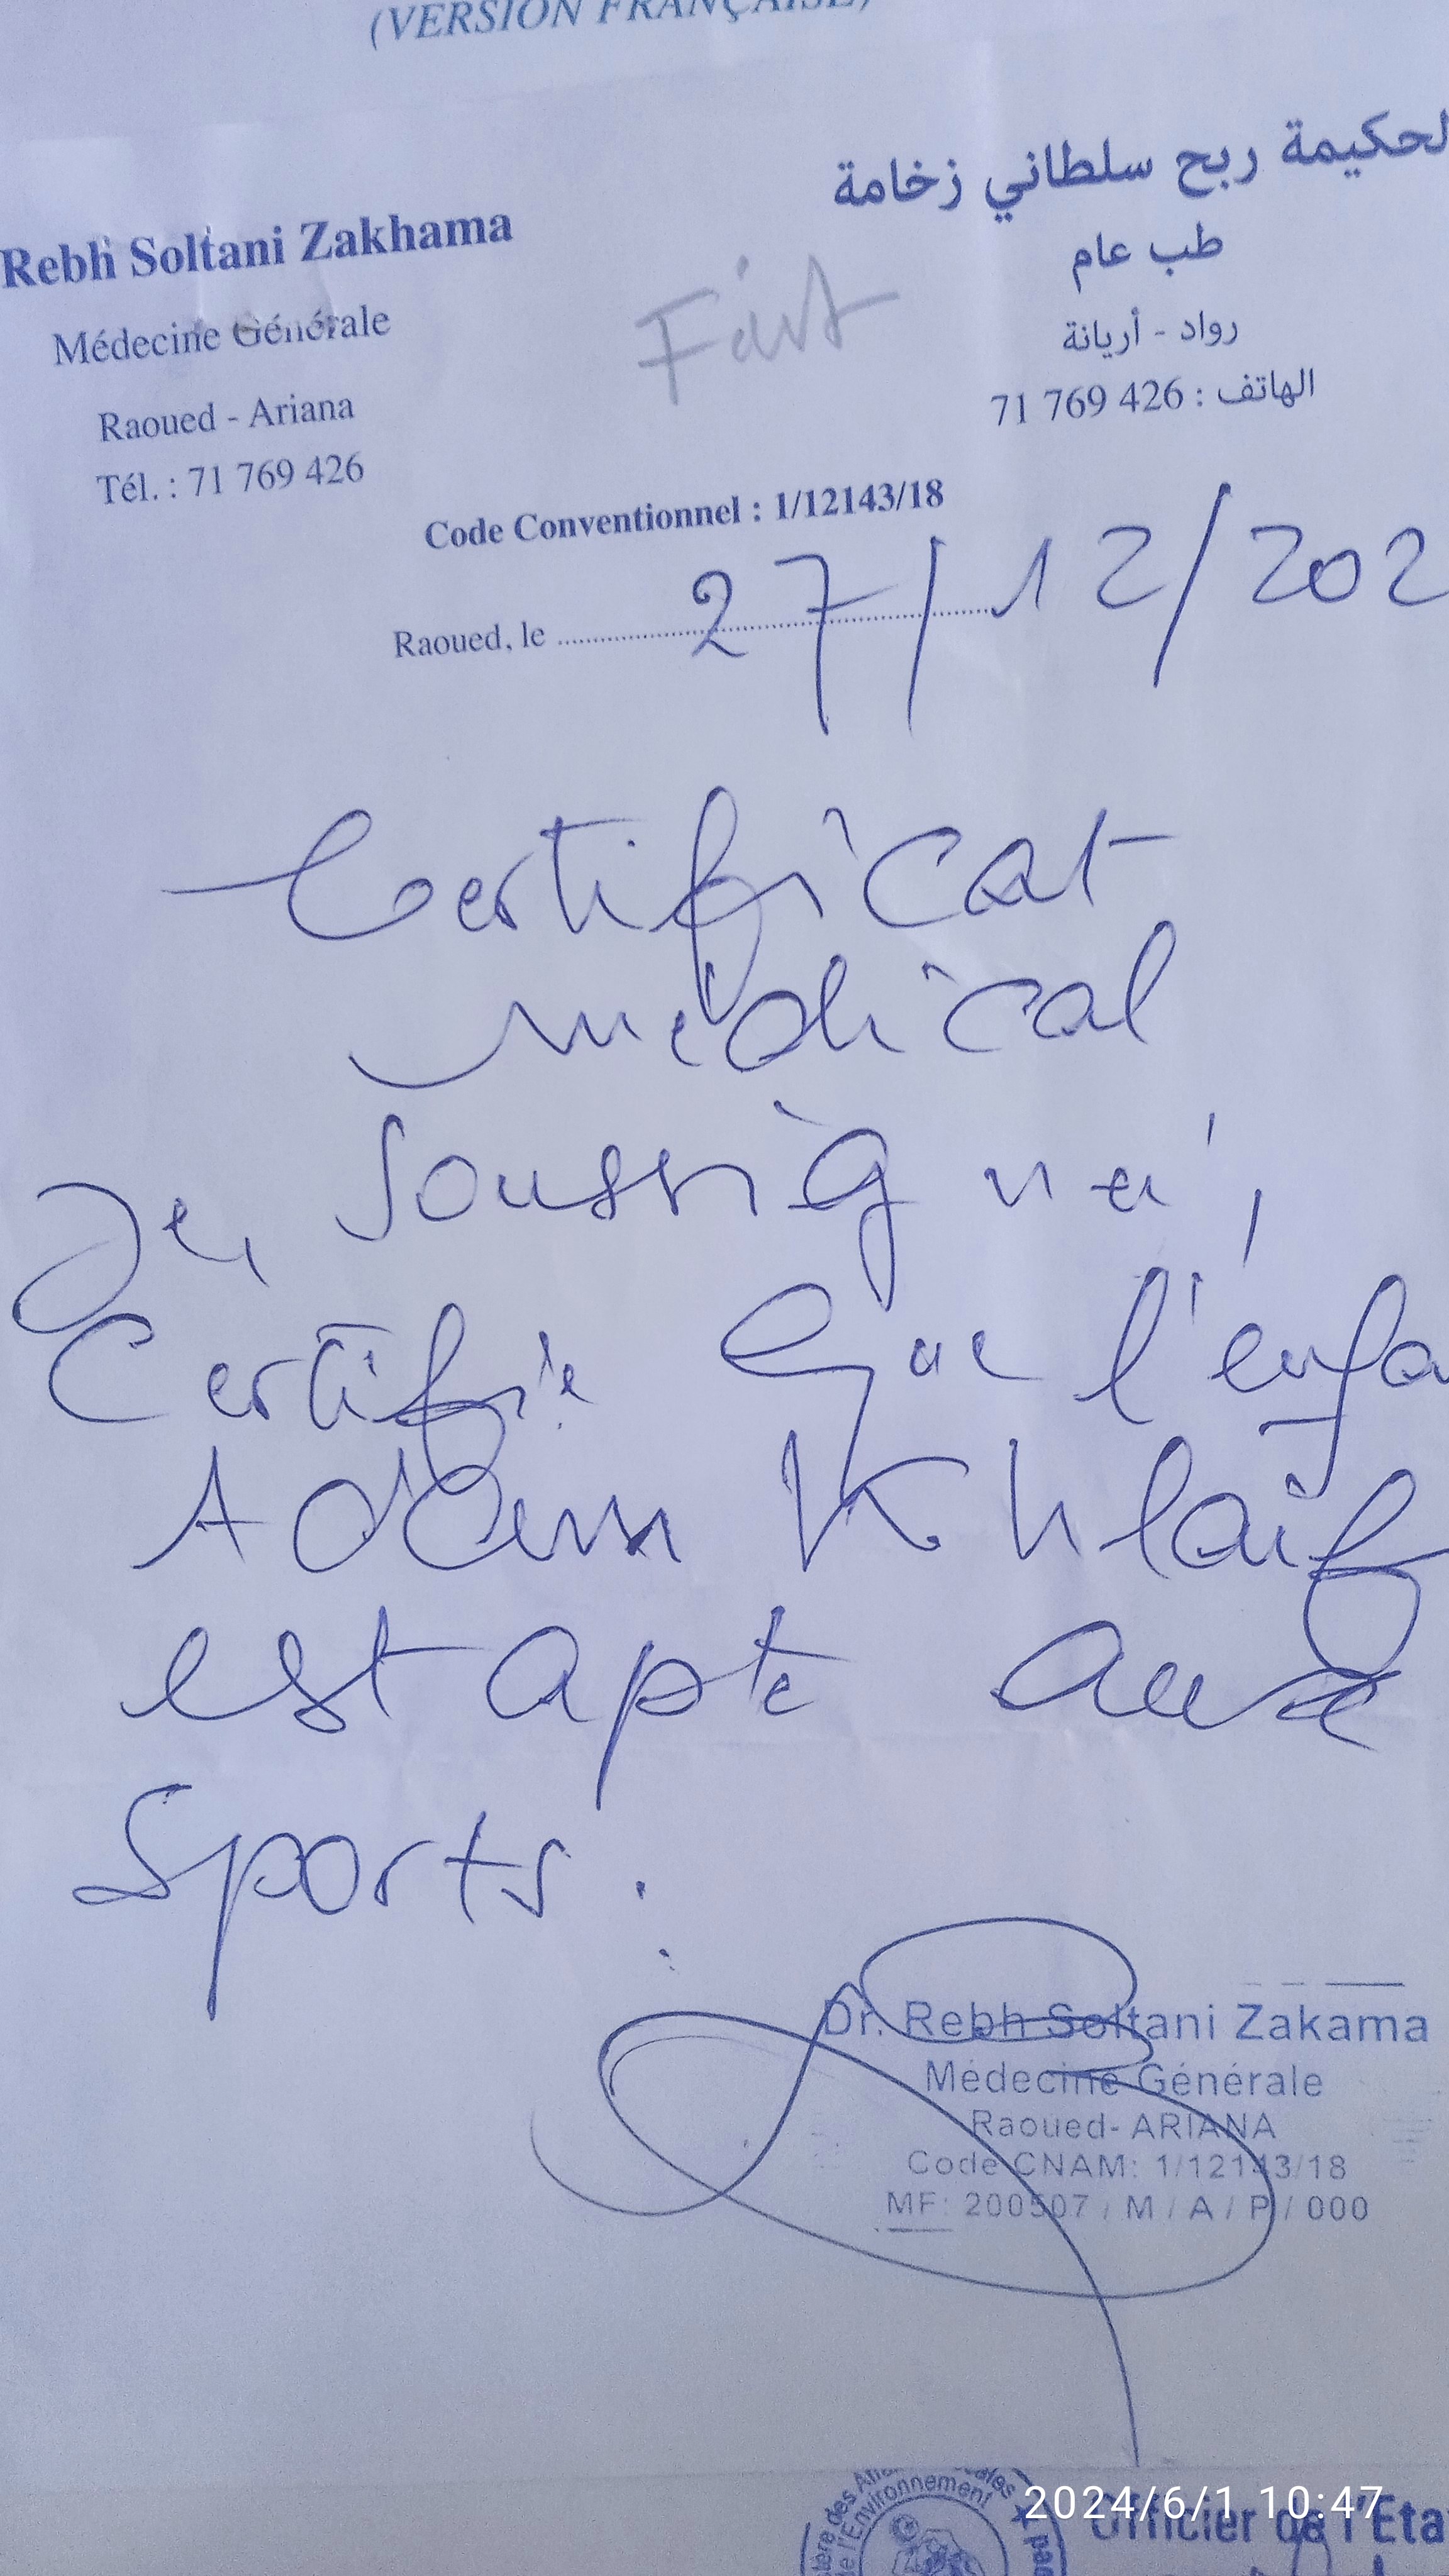 (VERSION FRANÇAISE)
Rebh Soltani Zakhama
Médecine Générale
Raoued - Ariana
Tél. : 71 769 426
لحكيمة ربح سلطاني زخامة
طب عام
رواد - أريانة
الهاتف : 426 769 71
Fait
Code Conventionnel : 1/12143/18
Raoued, le 27/12/202
Certificat
médical
Je, soussigné,
Certifie que l'enfa
Adem Khlaif
est apte aux
sports.
Dr. Rebh Soltani Zakama
Médecine Générale
Raoued- ARIANA
Code CNAM: 1/12143/18
MF: 200507 / M / A / P / 000
l'Environnement
Officier de l'Eta
2024/6/1 10:47